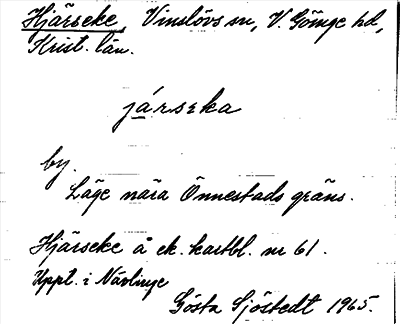 Hjärseke, Vinslövs sn, V. Göinge hd,
Krist. län.
járseka
by.
Läge nära Önnestads gräns.
Hjärseke å ek. kartbl. nr 61.
Uppt. i Nävlinge
Gösta Sjöstedt 1965.